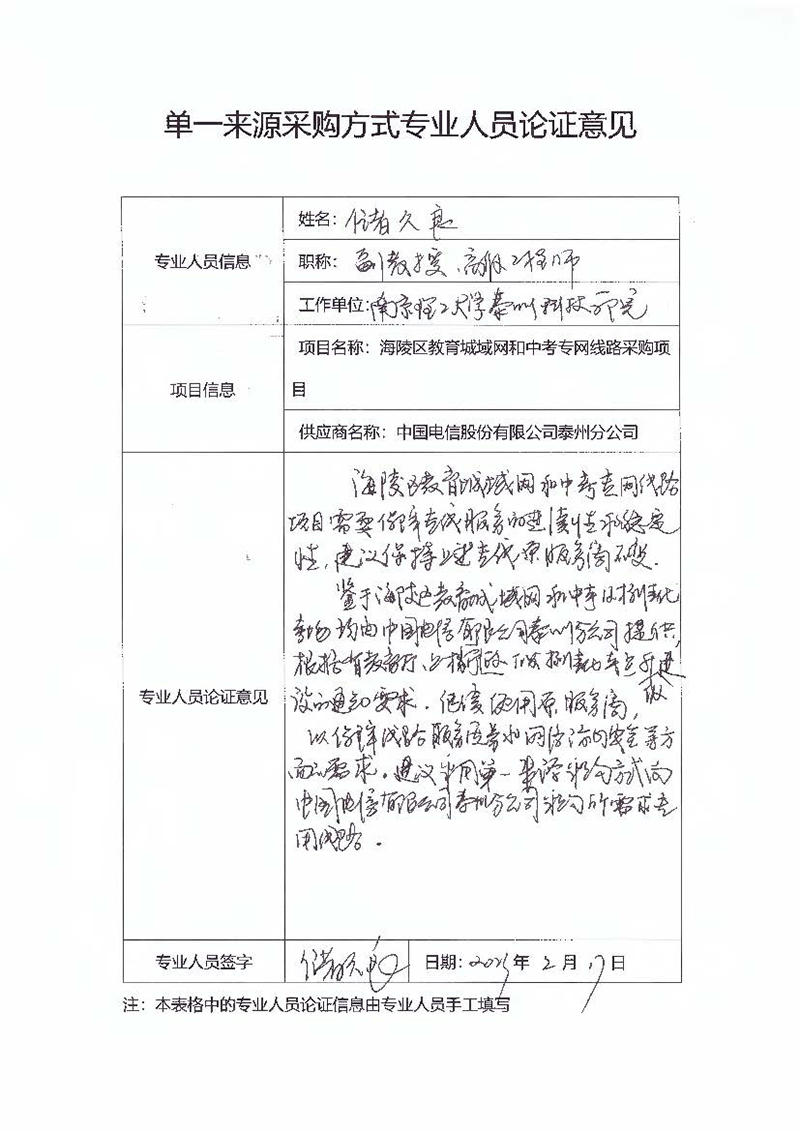 单一来源采购方式专业人员论证意见
专业人员信息
姓名：储久良
职称：副教授、高级工程师
工作单位：南京理工大学泰州科技学院
项目信息
项目名称：海陵区教育城域网和中考专网线路采购项
目
供应商名称：中国电信股份有限公司泰州分公司
专业人员论证意见
海陵区教育城域网和中考专网线路
项目需要保障专线服务的连续性和稳定
性，建议保持上述专线原服务商不变.
鉴于海陵区教育城域网和中考
均由中国电信有限公司泰州分公司提供，
根据省教育厅、
设的通知要求. 继续使用原服务商，
以保障线路服务质量和网络访问安全等方
面的需求. 建议采用单一来源采购方式向
中国电信有限公司泰州分公司采购所需求专
用线路.
专业人员签字
储久良
日期：2025年2月17日
注：本表格中的专业人员论证信息由专业人员手工填写